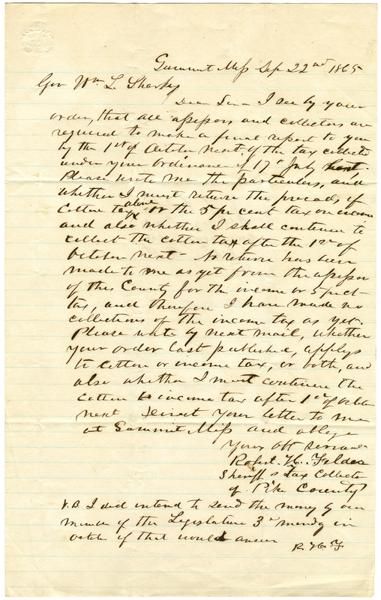 Summit Miss Sep 22nd 1865
Gov Wm L Sharkey
Dear Sir - I see by your
order, that all assessors and collectors are
required to make a final report to you
by the 1st of October next of the tax collected
under your ordinance of 17th July
Please write me the particulars, and
whether I must return the proceeds of
cotton tax alone or the 5 per cent tax on income
and also whether I shall continue to
collect the cotton tax after the 1st of
October next - No return has been
made to me as yet from the assessor
of this County for the income or specific
tax, and therefore I have made no
collections of the income tax as yet.
Please write by next mail, whether
your order last published, applys
to cotton or income tax, or both, and
also whether I must continue the
cotton & income tax after 1st of October
next Direct your letter to me
at Summit Miss and oblige
Your obt servant
Robert H. Felder
Sheriff & Tax Collector
of Pike County
N.B I did intend to send the money by our
member of the Legislature 3rd monday in
octobe if that would answer
R. H. F